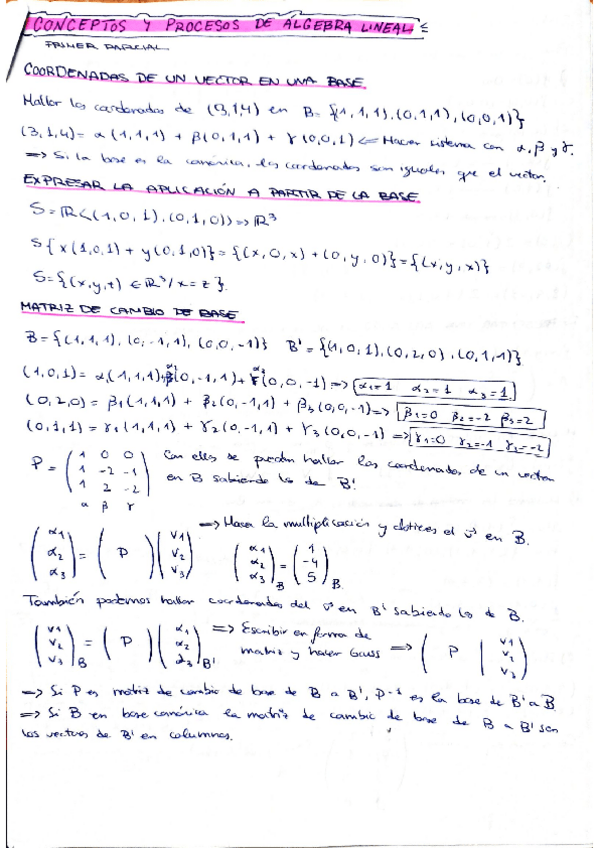 CONCEPTOS Y PROCESOS DE ALGEBRA LINEAL
PRIMER PARCIAL
COORDENADAS DE UN VECTOR EN UNA BASE
Hallar las coordenadas de (3,1,4) en B = {(1,1,1), (0,1,1), (0,0,1)}
(3,1,4) = α(1,1,1) + β(0,1,1) + γ(0,0,1) ⇐ Hacer sistema con α, β y γ.
⇒ Si la base es la canónica, las coordenadas son iguales que el vector.
EXPRESAR LA APLICACIÓN A PARTIR DE LA BASE
S = ℝ<(1,0,1), (0,1,0)> ⇒ ℝ³
S{x(1,0,1) + y(0,1,0)} = {(x,0,x) + (0,y,0)} = {(x,y,x)}
S = {(x,y,z) ∈ ℝ³/x = z}.
MATRIZ DE CAMBIO DE BASE
B = {(1,1,1), (0,-1,1), (0,0,-1)} B' = {(1,0,1), (0,2,0), (0,1,1)}
(1,0,1) = α₁(1,1,1) + α₂(0,-1,1) + α₃(0,0,-1) ⇒ α₁=1 α₂=1 α₃=1
(0,2,0) = β₁(1,1,1) + β₂(0,-1,1) + β₃(0,0,-1) ⇒ β₁=0 β₂=-2 β₃=2
(0,1,1) = γ₁(1,1,1) + γ₂(0,-1,1) + γ₃(0,0,-1) ⇒ γ₁=0 γ₂=-1 γ₃=-2
P = (1 0 0 Con ellas se pueden hallar las coordenadas de un vector
1 -2 -1 en B sabiendo las de B'
1 2 -2)
α β γ
⇒ Hacer la multiplicación y obtienes el v⃗ en B.
(α₁ α₂ α₃) = (P)(v₁ v₂ v₃) (α₁ α₂ α₃)B = (1 -4 5)B
También podemos hallar coordenadas del v⃗ en B' sabiendo las de B.
(v₁ v₂ v₃)B = (P)(α₁ α₂ α₃)B' ⇒ Escribir en forma de matriz y hacer Gauss ⇒ (P | v₁ v₂ v₃)
⇒ Si P es matriz de cambio de base de B a B', P⁻¹ es la base de B' a B
⇒ Si B en base canónica la matriz de cambio de base de B a B' son
los vectores de B' en columnas.